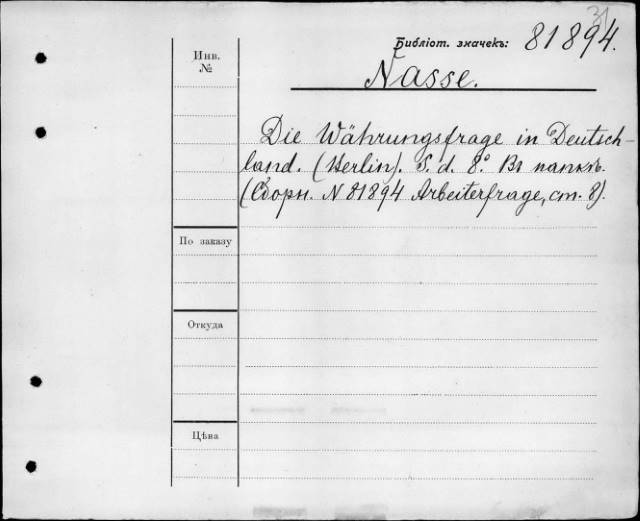 31
Библіот. значекъ: 81894.
Инв.
№
Nasse.
Die Währungsfrage in Deutsch-
land. (Berlin). S. d. 8.° Въ папкѣ.
(Сборн. N 81894 Arbeiterfrage, ст. 8).
По заказу
Откуда
Цѣна